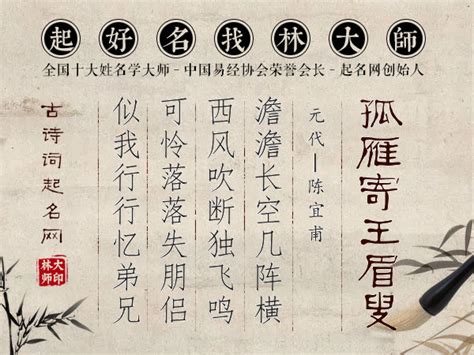 起好名找林大師
全国十大姓名学大师-中国易经协会荣誉会长-起名网创始人
孤雁寄王眉叟
元代—陈宜甫
澹澹长空几阵横
西风吹断独飞鸣
可怜落落失朋侣
似我行行忆弟兄
古诗词起名网
林大师印